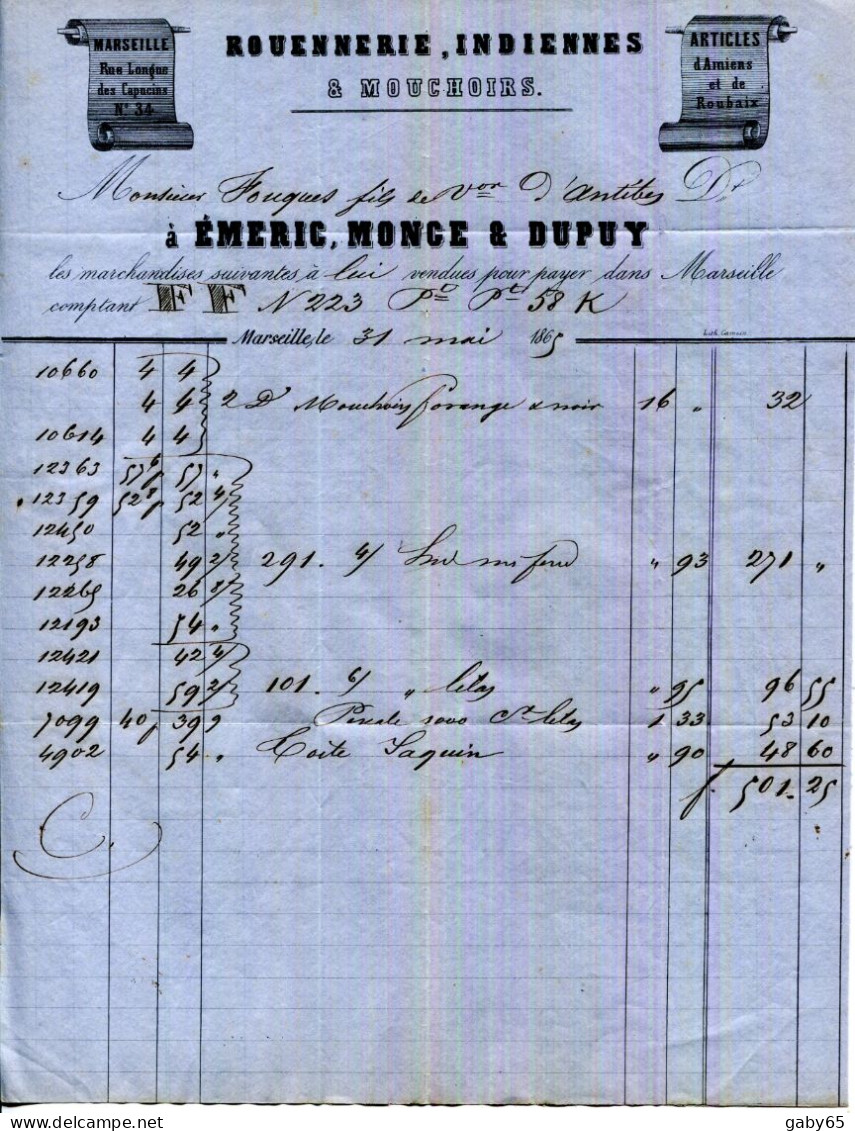 MARSEILLE
Rue Longue
des Capucins
N° 34
ROUENNERIE, INDIENNES
& MOUCHOIRS.
ARTICLES
d'Amiens
et de
Roubaix
Monsieur Fouques fils de Vor D'Antibes Dt
à ÉMERIC, MONGE & DUPUY
les marchandises suivantes à lui vendues pour payer dans Marseille
comptant FF N 223 Pt 58 K
Marseille, le 31 mai 1865
10660 4 4
4 4 2 Dz Mouchoirs orange & noir 16 " 32
10614 4 4
12363 57 57 "
12359 52 52 4/
12450 52 "
12258 49 2/ 291. 4/ " 93 271 "
12265 26
12193 54 "
12421 42 4/
12419 59 2/ 101. 6/ " lilas " 95 96 55
7099 40 39 9 lilas 1 33 53 10
4902 54 " " 90 48 60
f. 501.25
gaby65